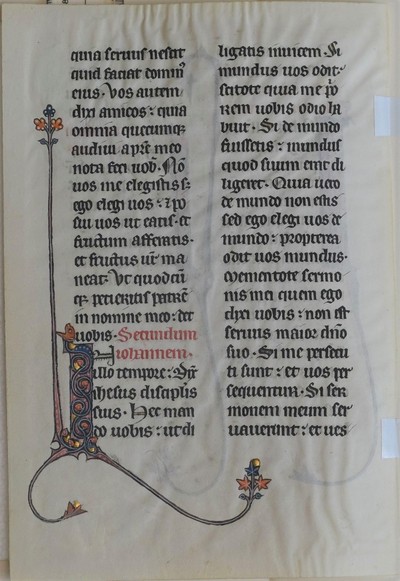 quia seruus nescit
quid faciat domin⁹
eius. Vos autem
dixi amicos : quia
omnia quecumq;
audiui a pr̄e meo
nota feci uob̄. Nō
uos me elegistis s;
ego elegi uos : ⁊ po
sui uos ut eatis. et
fructum afferatis.
et fructus ur̄ ma
neat. Vt quodcū
q; petieritis patrē
in nomine meo : det
uobis. Secundum
iohannem.
In illo tempore : Dix̄
ihesus discipulis
suis. Hec man
do uobis : ut di
ligatis inuicem. Si
mundus uos odit :
scitote quia me p̄o
rem uobis odio ha
buit. Si de mundo
fuissetis : mundus
quod suum erat di
ligeret. Quia uero
de mundo non estis
sed ego elegi uos de
mundo : propterea
odit uos mundus.
Mementote sermo
nis mei quem ego
dixi uobis : non est
seruus maior dn̄o
suo. Si me persecu
ti sunt : et uos per
sequentur. Si ser
monem meum ser
uauerunt : et ues